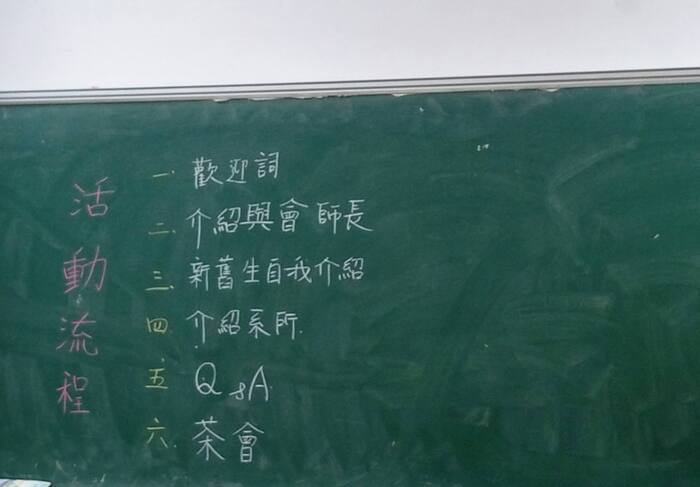 活動流程
一. 歡迎詞
二. 介紹興會師長
三. 新舊生自我介紹
四. 介紹系所.
五. Q&A
六. 茶會